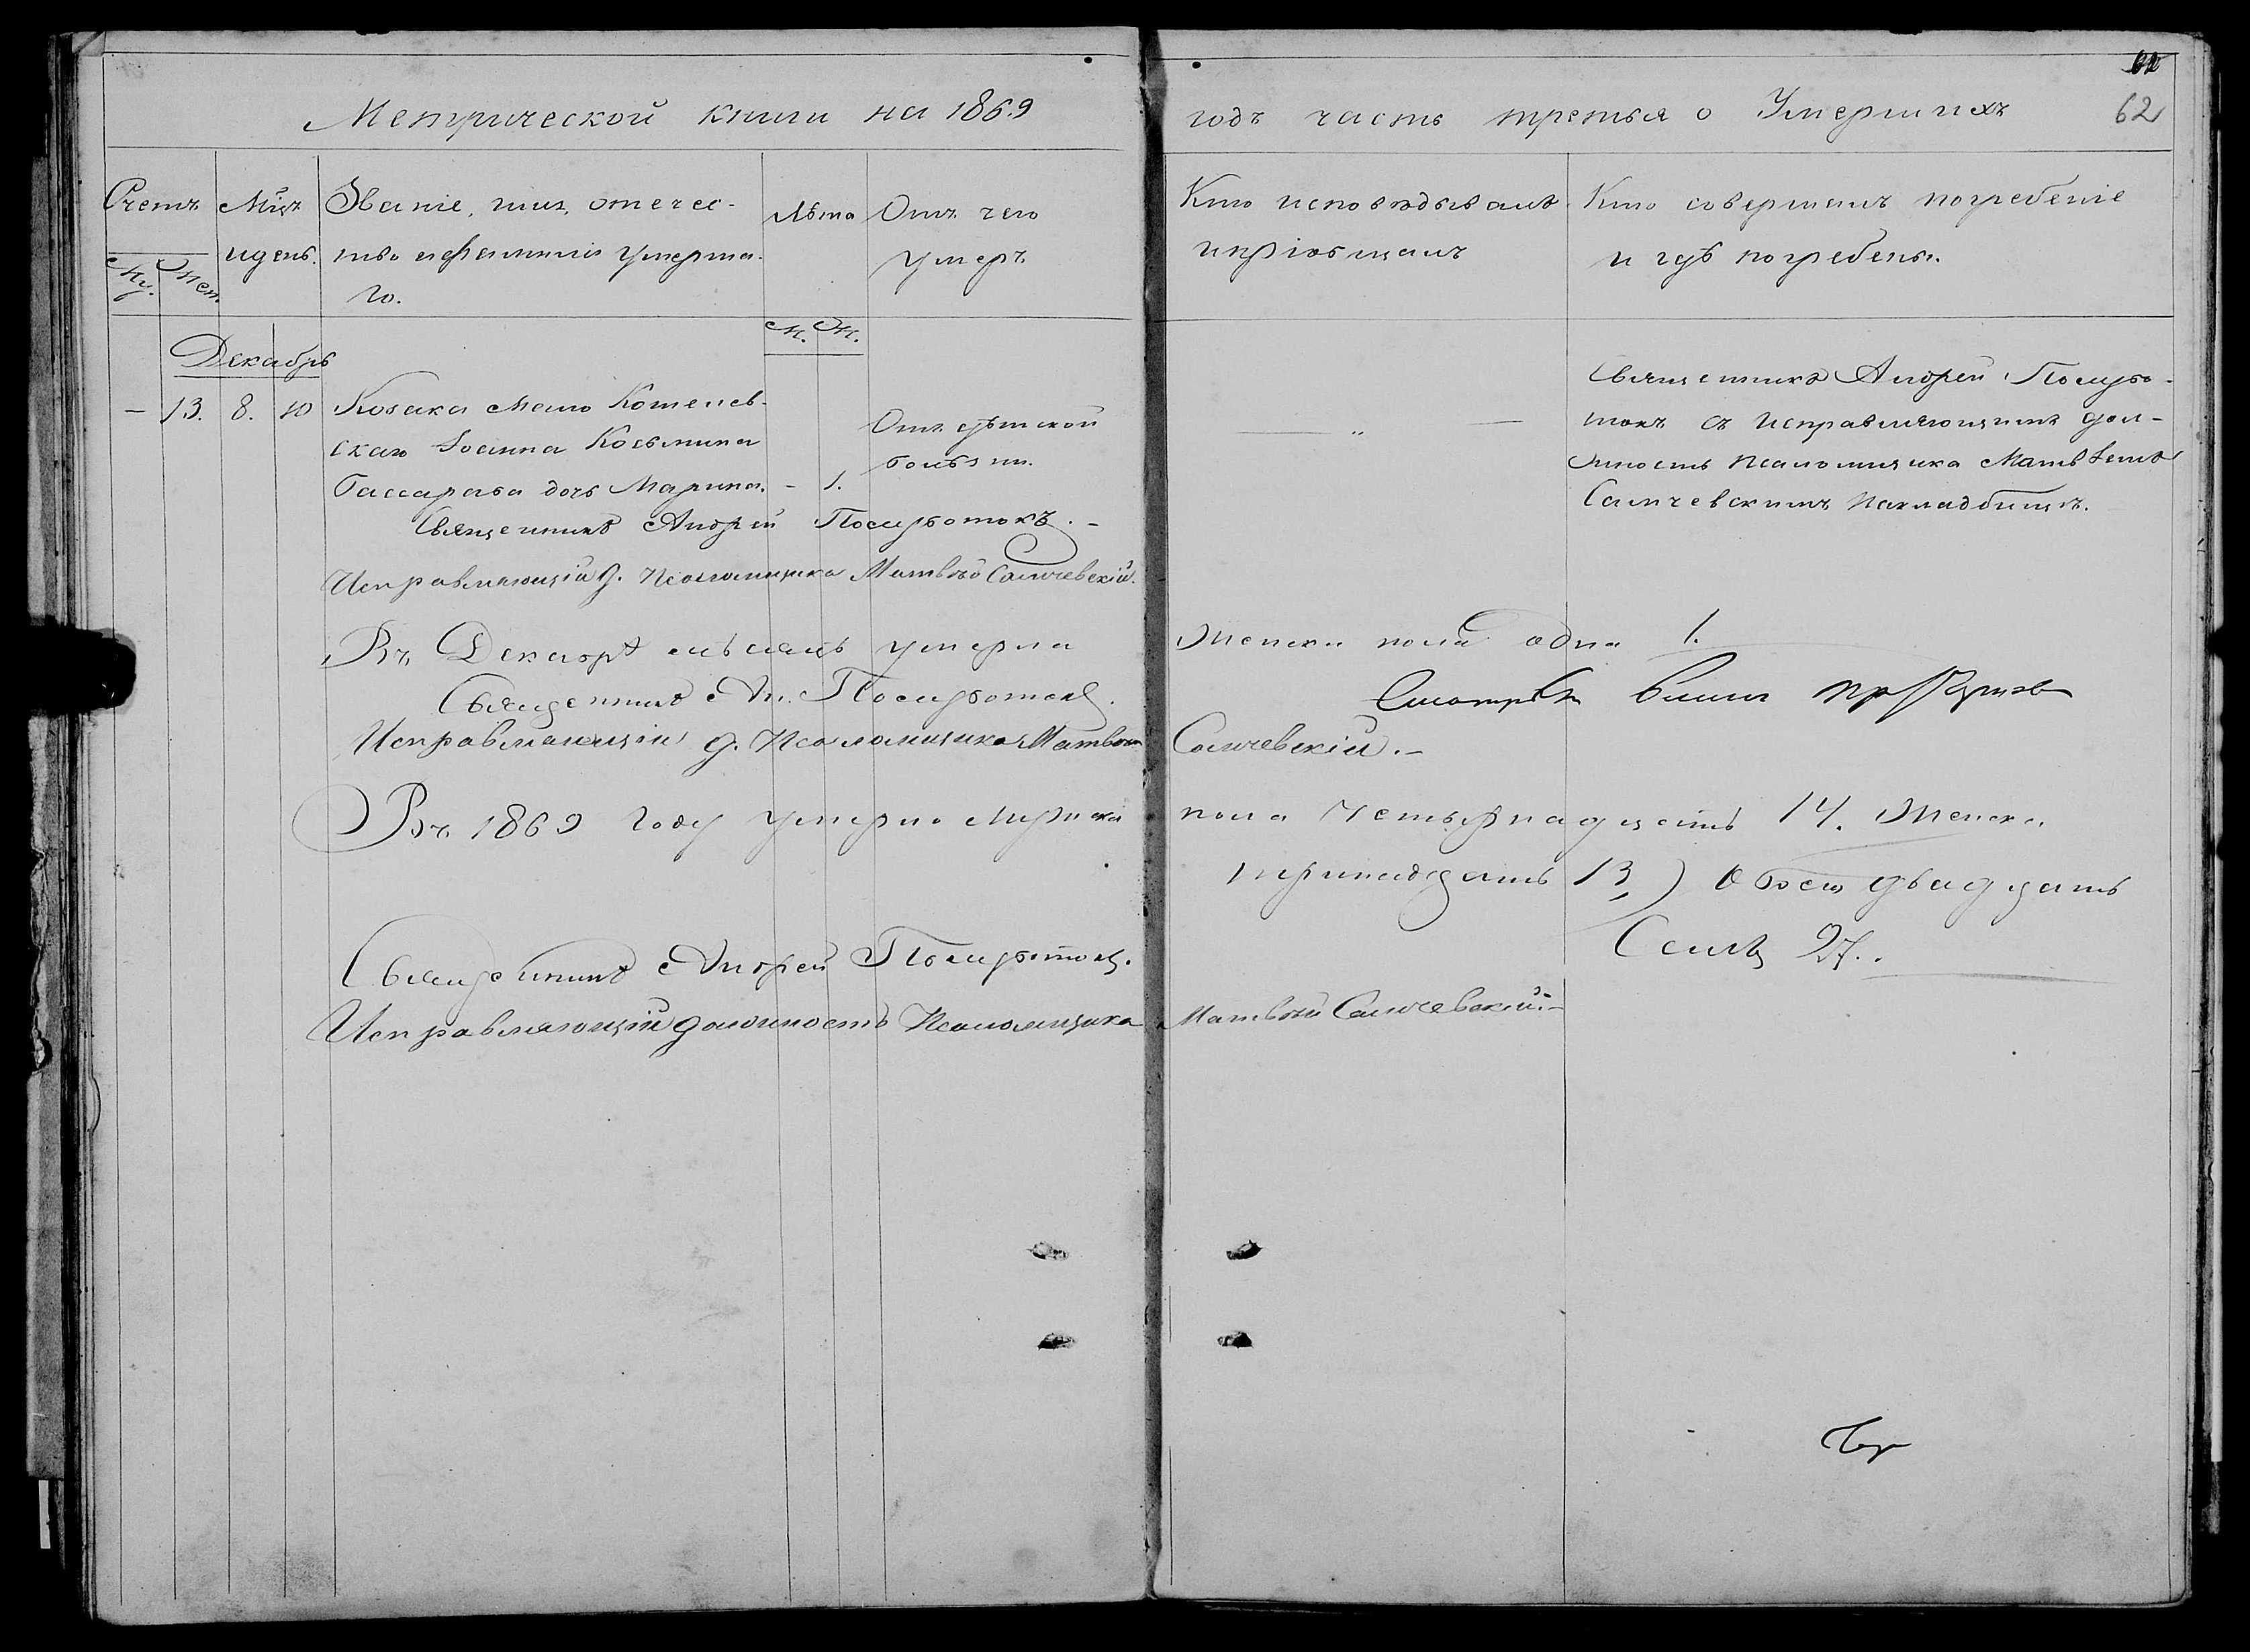 Метрической книги на 1869
годъ часть третья о Умершихъ
62
Счетъ
Му.
Жен.
Мцъ
и день.
Званіе, имя, отечес-
тво и фамилія умерша-
го.
Лѣта
М. Ж.
Отъ чего
умеръ
Кто исповѣдывалъ
и пріобщалъ
Кто совершалъ погребеніе
и гдѣ погребены.
Декабрь
— 13. 8. 10
Козака Мало Котелев-
скаго Іоанна Косьмина
Гассараба дочь Марина. - 1.
Отъ дѣтской
болѣзни.
— „ —
Священникъ Андрей Посурбо-
токъ съ исправляющимъ дол-
жность псаломщика Матвѣемъ
Саличевскимъ на кладбищѣ.
Священникъ Андрей Посурботокъ. -
Исправляющій д. Псаломщика Матвѣй Саличевскій.
Въ Декабрѣ мѣсяцѣ умерла
женска пола одна 1.
Священникъ Ан. Посурботокъ.
Исправляющій д. Псаломщика Матвѣй
Саличевскій. -
Въ 1869 году умерло мужска
пола четырнадцать 14. женска
тринадцать 13,) Обоего двадцать
Семь 27..
Священникъ Андрей Посурботокъ.
Исправляющій должность Псаломщика
Матвѣй Саличевскій. -